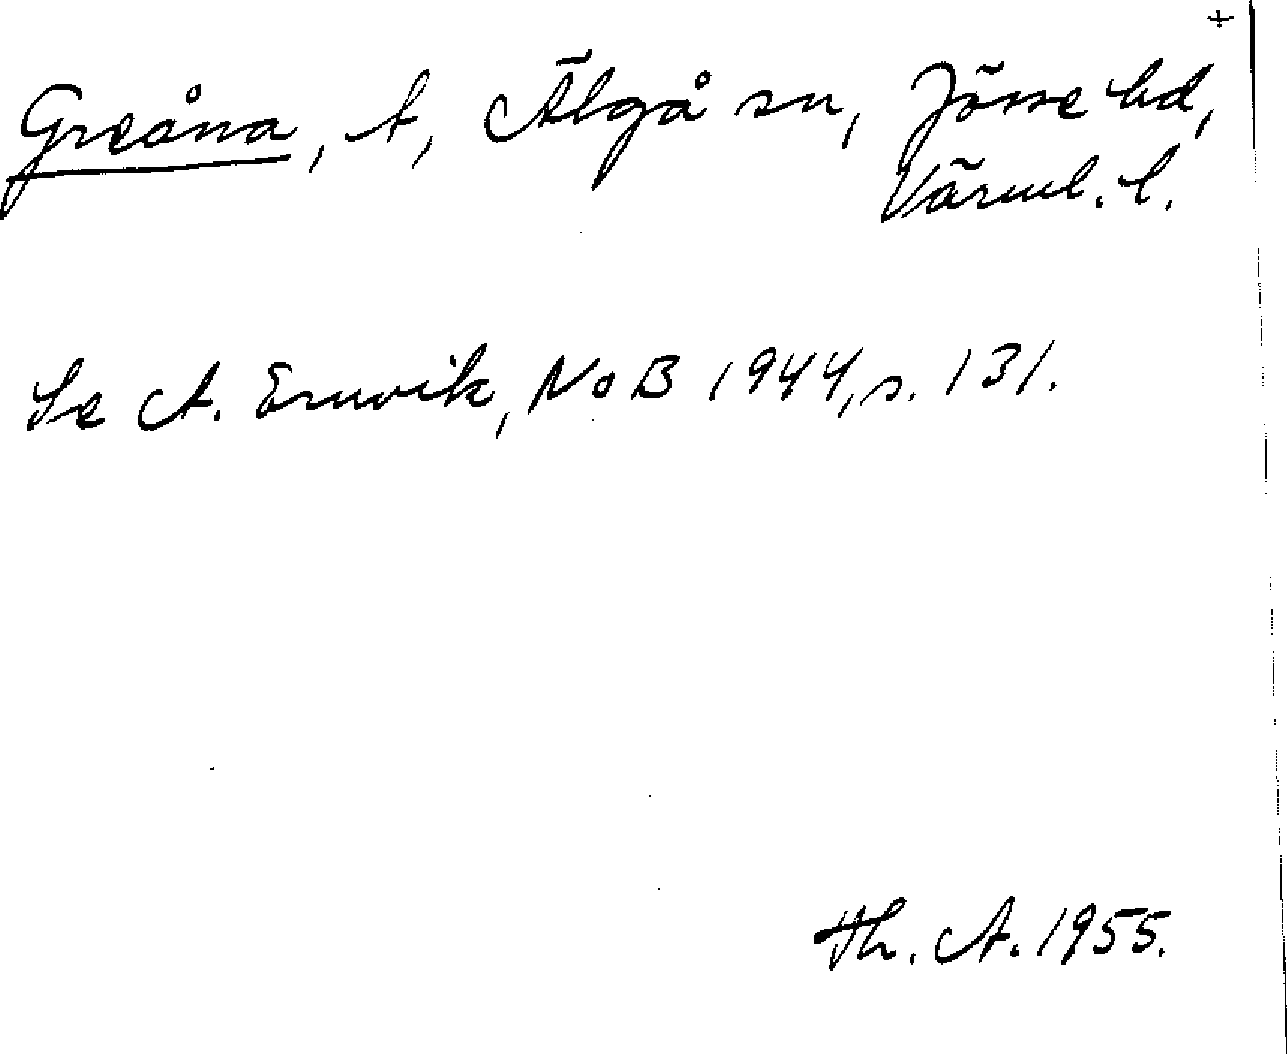 +
Greåna, t, Älgå sn, Jösse hd,
Värml. l.
Se A. Ernvik, NoB 1944, s. 131.
Th. A. 1955.